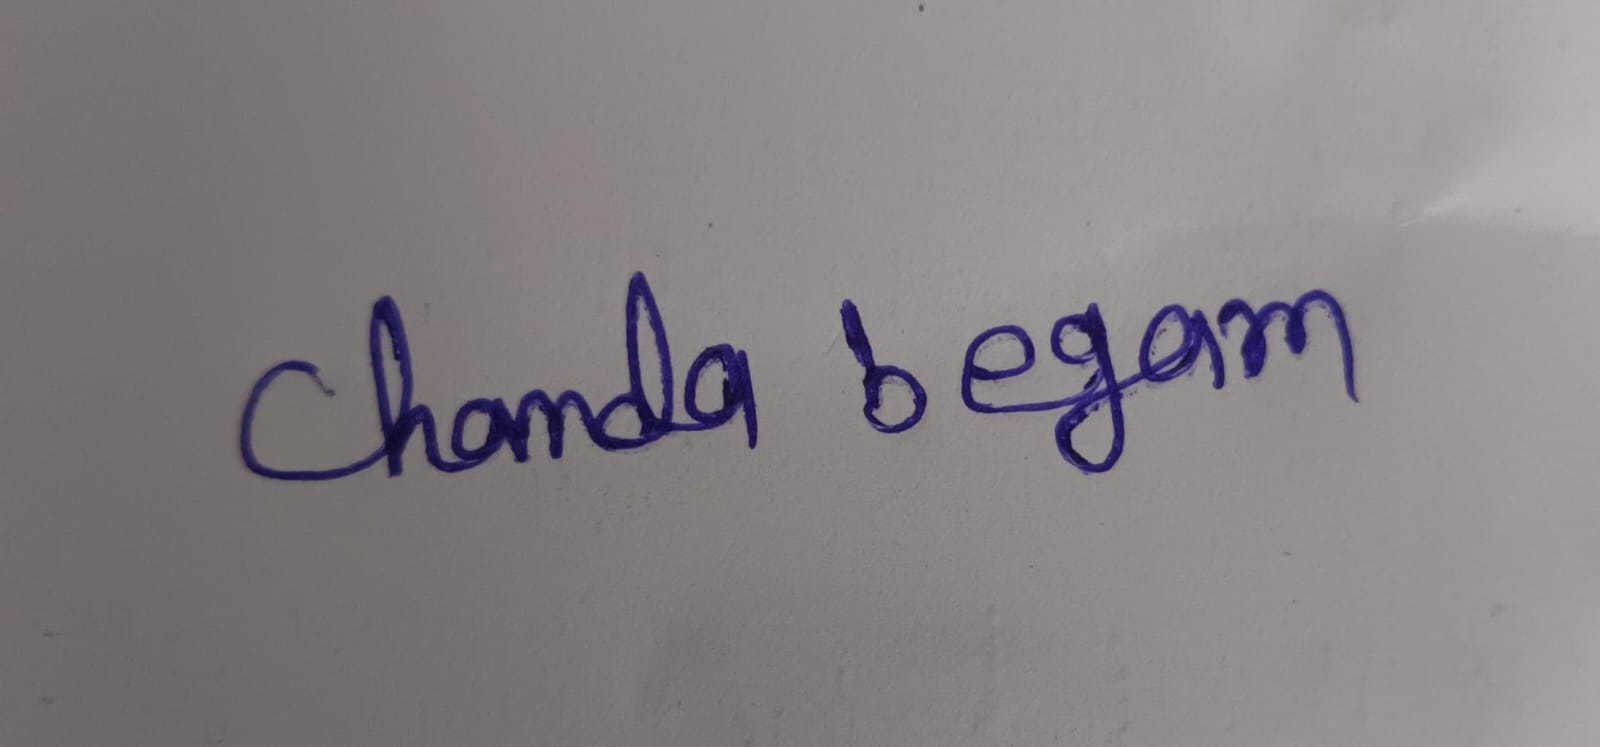 Chanda begam